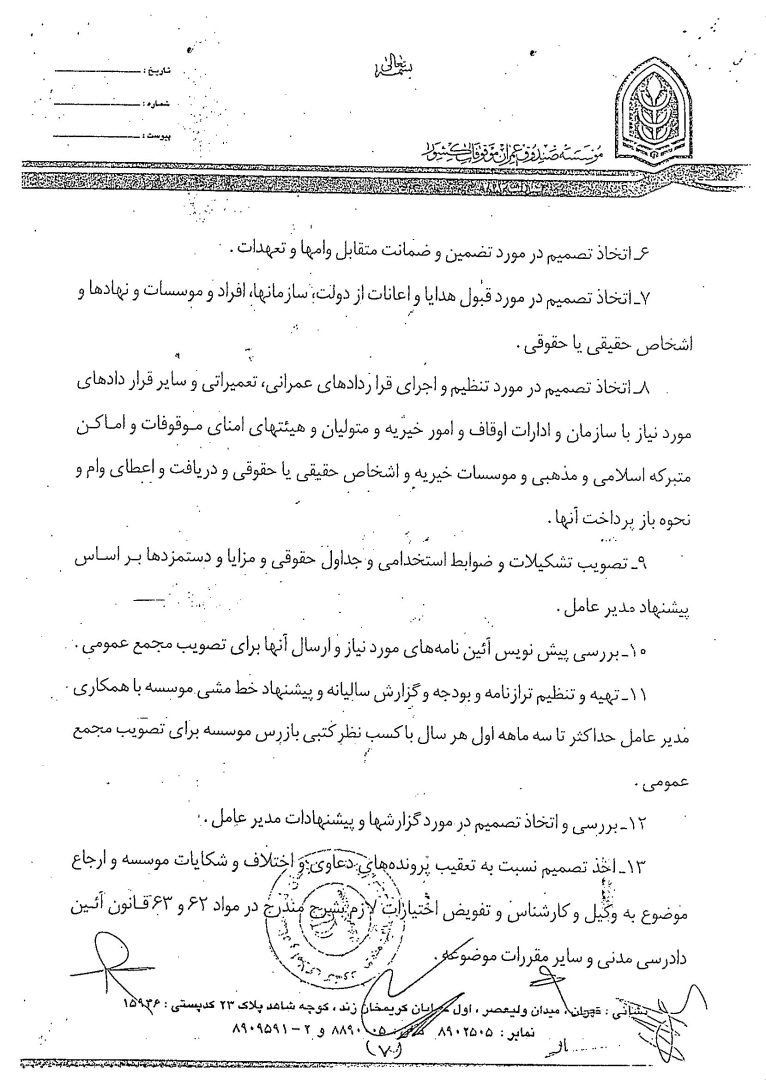 بسمه تعالی
تاریخ :
شماره :
پیوست :
موسسه صندوق عمران موقوفات کشور
۶ـ اتخاذ تصمیم در مورد تضمین و ضمانت متقابل وامها و تعهدات .
۷ـ اتخاذ تصمیم در مورد قبول هدایا و اعانات از دولت، سازمانها، افراد و موسسات و نهادها و
اشخاص حقیقی یا حقوقی .
۸ـ اتخاذ تصمیم در مورد تنظیم و اجرای قرا ردادهای عمرانی، تعمیراتی و سایر قرار دادهای
مورد نیاز با سازمان و ادارات اوقاف و امور خیریه و متولیان و هیئتهای امنای موقوفات و اماکن
متبرکه اسلامی و مذهبی و موسسات خیریه و اشخاص حقیقی یا حقوقی و دریافت و اعطای وام و
نحوه باز پرداخت آنها .
۹ـ تصویب تشکیلات و ضوابط استخدامی و جداول حقوقی و مزایا و دستمزدها بر اساس
پیشنهاد مدیر عامل .
۱۰ـ بررسی پیش نویس آئین نامه‌های مورد نیاز و ارسال آنها برای تصویب مجمع عمومی .
۱۱ـ تهیه و تنظیم ترازنامه و بودجه و گزارش سالیانه و پیشنهاد خط مشی موسسه با همکاری
مدیر عامل حداکثر تا سه ماهه اول هر سال با کسب نظر کتبی بازرس موسسه برای تصویب مجمع
عمومی .
۱۲ـ بررسی و اتخاذ تصمیم در مورد گزارشها و پیشنهادات مدیر عامل .
۱۳ـ اخذ تصمیم نسبت به تعقیب پرونده‌های دعاوی و اختلاف و شکایات موسسه و ارجاع
موضوع به وکیل و کارشناس و تفویض اختیارات لازم بشرح مندرج در مواد ۶۲ و ۶۳ قانون آئین
دادرسی مدنی و سایر مقررات موضوعه .
نشانی : تهران ، میدان ولیعصر ، اول خیابان کریمخان زند ، کوچه شاهد پلاک ۲۳ کدپستی : ۱۵۹۳۶
نمابر : ۸۹۰۲۵۰۵ و ۲ - ۸۹۰۹۵۹۱
(۷)